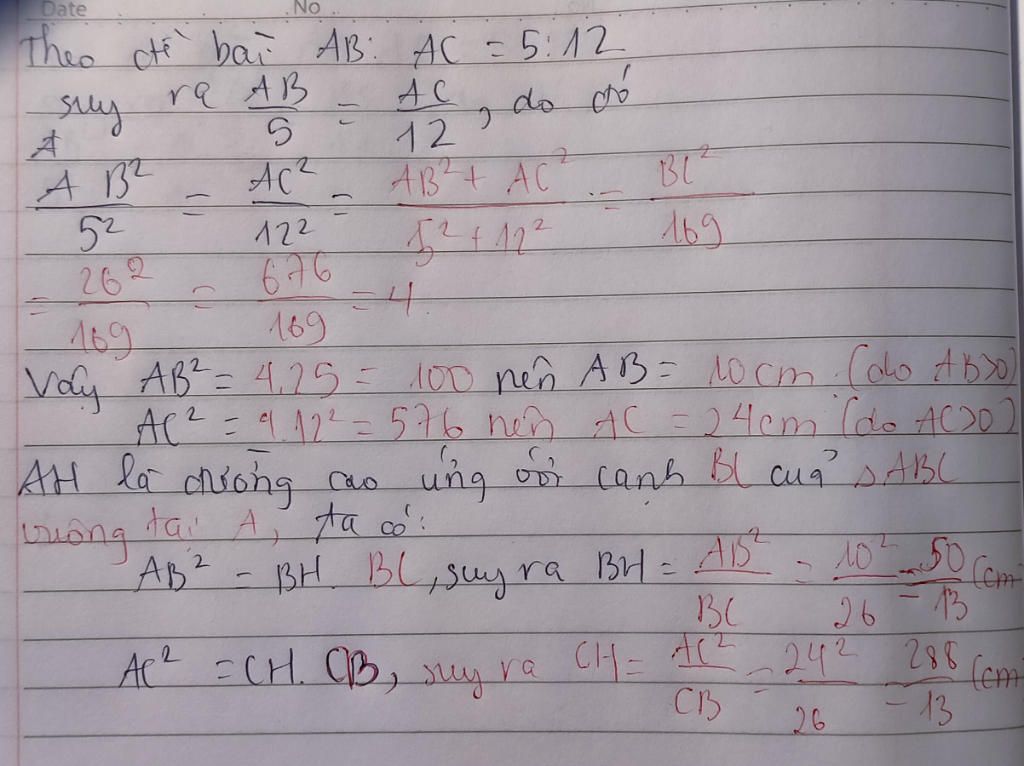 Date No
Theo đề bài AB: AC = 5:12
suy ra AB/5 = AC/12, do đó
A
AB²/5² = AC²/12² = AB² + AC²/5² + 12² = BC²/169
= 26²/169 = 676/169 = 4
Vậy AB² = 4.25 = 100 nên AB = 10cm (do AB>0)
AC² = 4.12² = 576 nên AC = 24cm (do AC>0)
AH là đường cao ứng với cạnh BC của △ABC
vuông tại A, ta có:
AB² = BH. BC, suy ra BH = AB²/BC = 10²/26 = 50/13 (cm
AC² = CH. CB, suy ra CH = AC²/CB = 24²/26 = 288/13 (cm